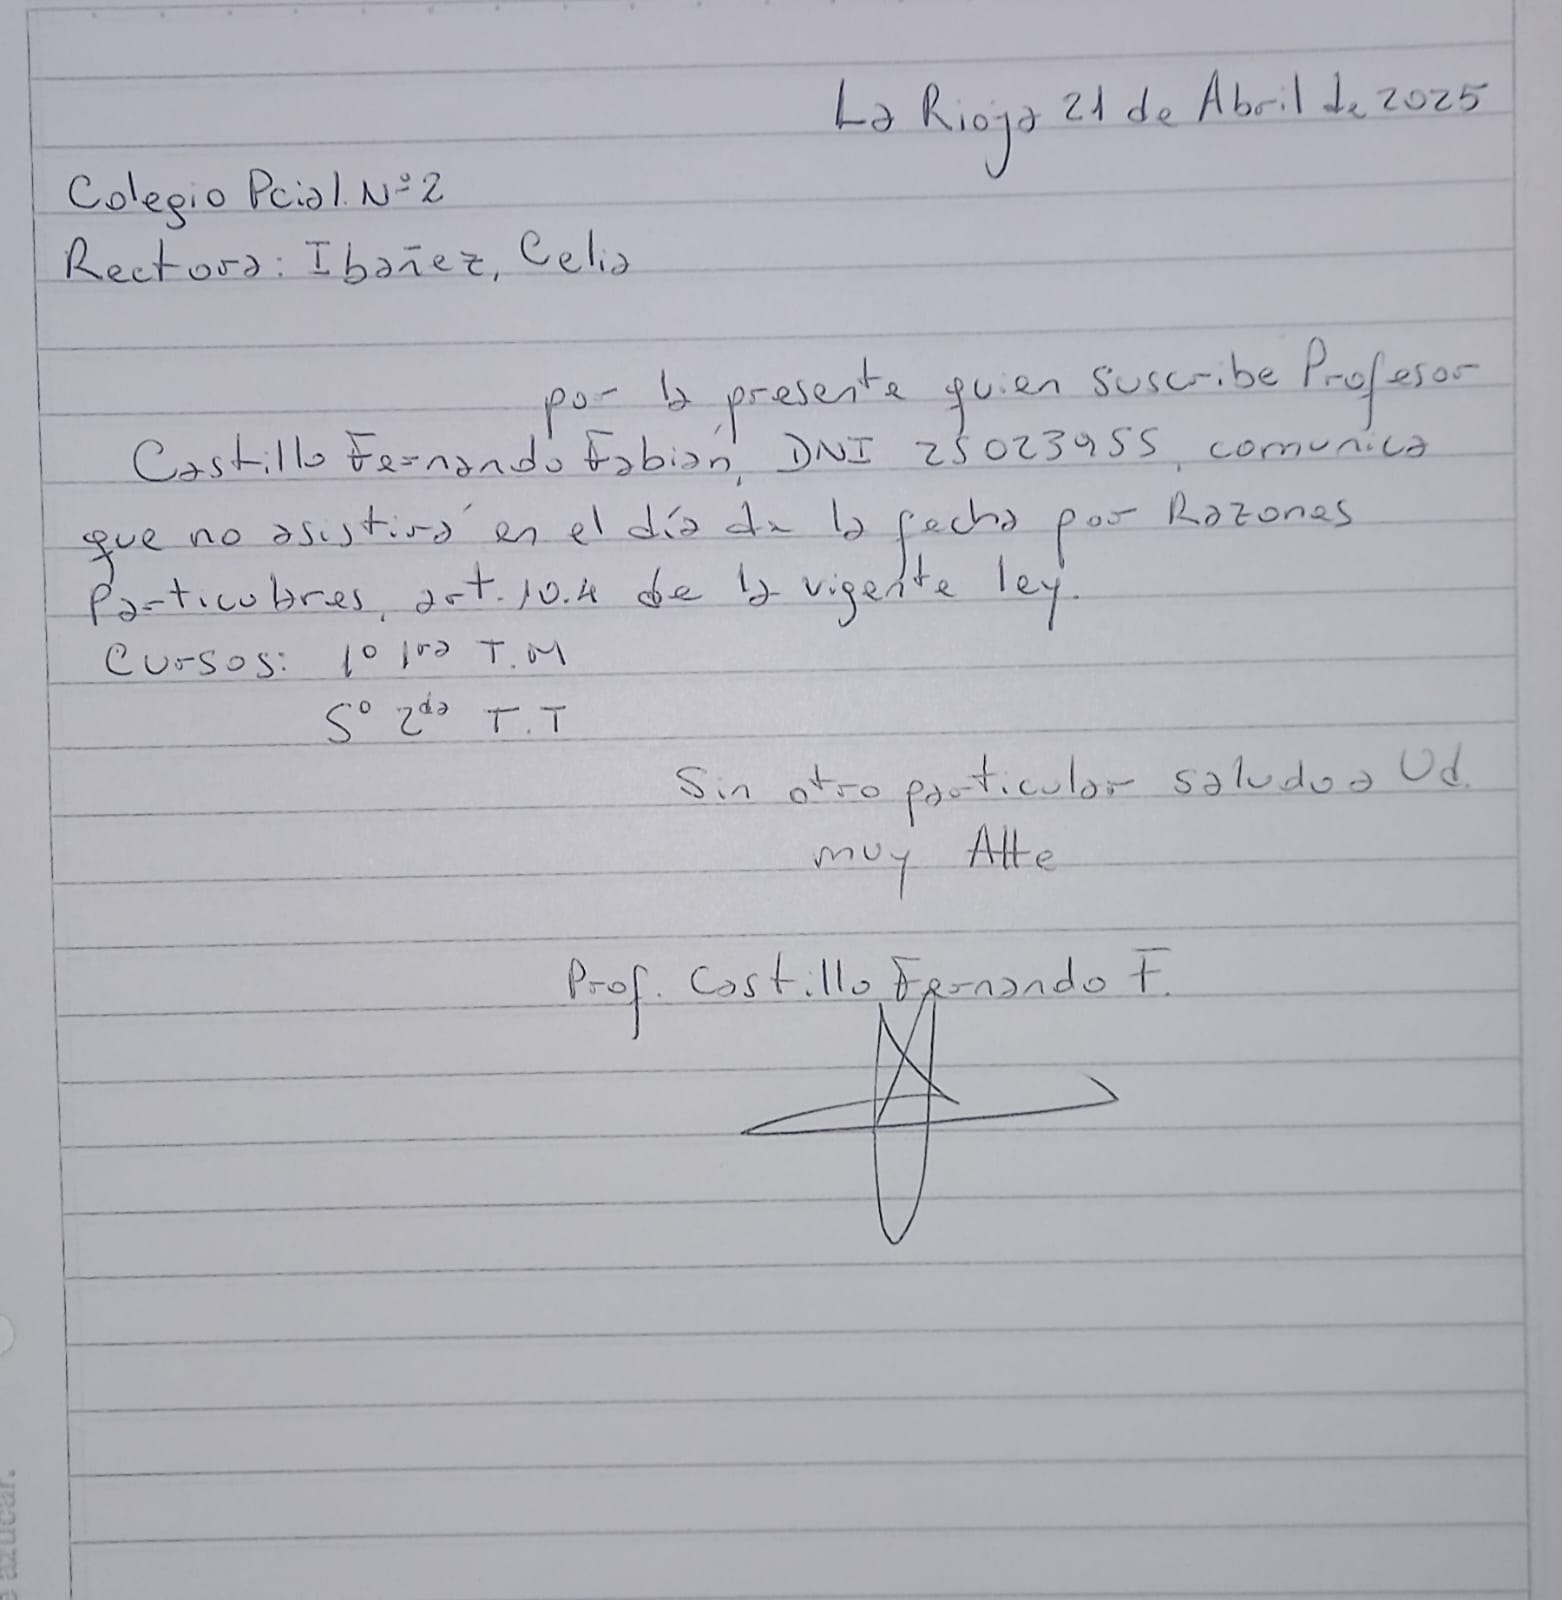 La Rioja 21 de Abril de 2025
Colegio Pcial. Nº 2
Rectora: Ibañez, Celia
por la presente quien suscribe Profesor
Castillo Fernando Fabián, DNI 25023955, comunica
que no asistirá en el día de la fecha por Razones
Particulares, art. 10.4 de la vigente ley.
Cursos: 1º 1ra T.M
5º 2da T.T
Sin otro particular saludo a Ud.
muy Atte
Prof. Castillo Fernando F.
azúcar.